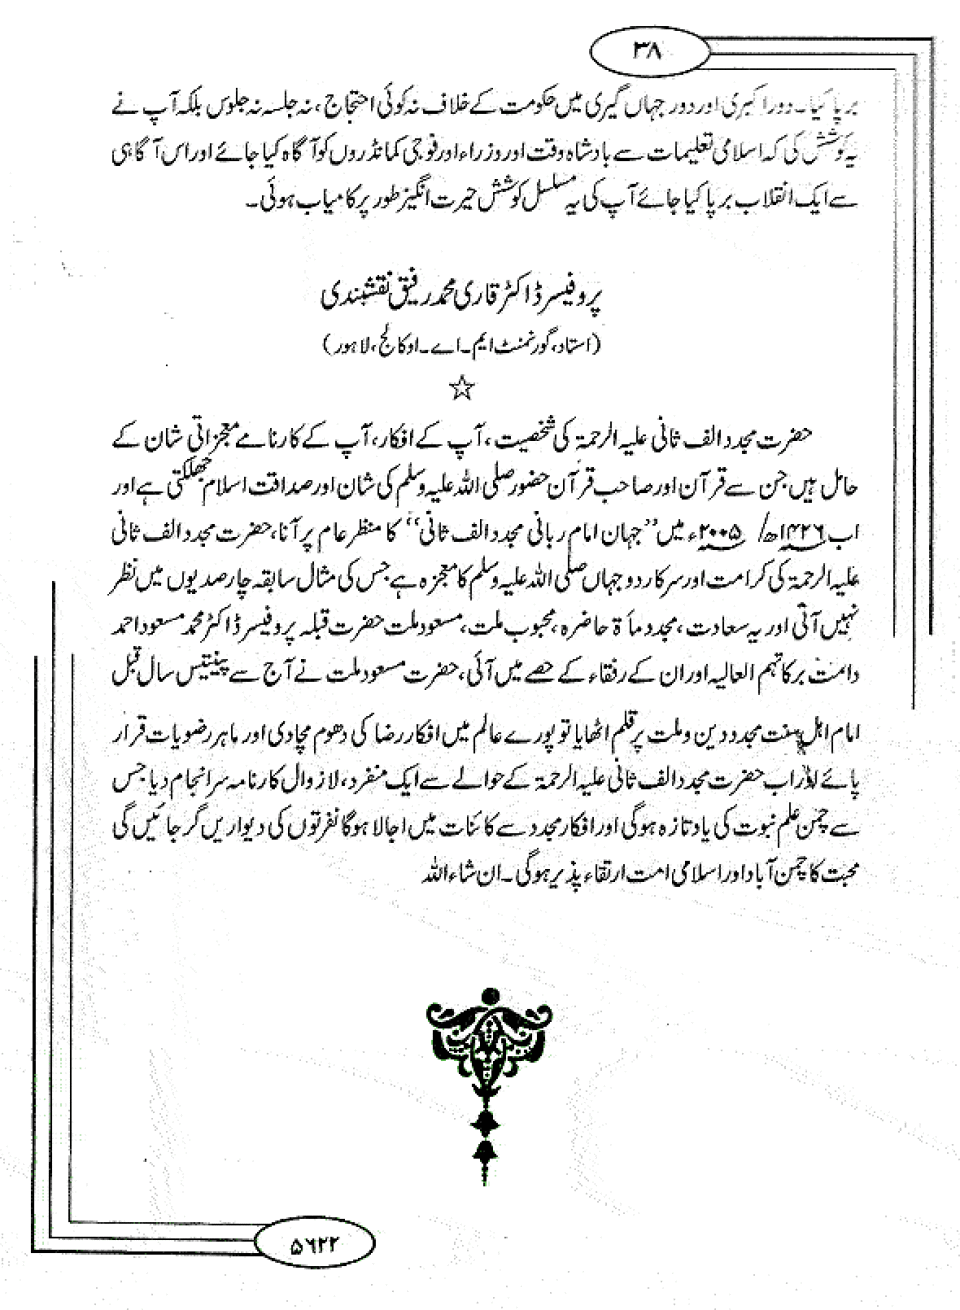 ۳۸
برپا کیا۔ دور اکبری اور دور جہاں گیری میں حکومت کے خلاف نہ کوئی احتجاج، نہ جلسہ نہ جلوس بلکہ آپ نے
یہ کوشش کی کہ اسلامی تعلیمات سے بادشاہ وقت اور وزراء اور فوجی کمانڈروں کو آگاہ کیا جائے اور اس آگاہی
سے ایک انقلاب برپا کیا جائے آپ کی یہ مسلسل کوشش حیرت انگیز طور پر کامیاب ہوئی۔
پروفیسر ڈاکٹر قاری محمد رفیق نقشبندی
(استاد، گورنمنٹ ایم۔اے۔او کالج، لاہور)
☆
حضرت مجدد الف ثانی علیہ الرحمۃ کی شخصیت، آپ کے افکار، آپ کے کارنامے معجزاتی شان کے
حامل ہیں جن سے قرآن اور صاحب قرآن حضور صلی اللہ علیہ وسلم کی شان اور صداقت اسلام جھلکتی ہے اور
اب ۱۴۲۶ھ/ ۲۰۰۵ء میں ”جہان امام ربانی مجدد الف ثانی“ کا منظر عام پر آنا، حضرت مجدد الف ثانی
علیہ الرحمۃ کی کرامت اور سرکار دو جہاں صلی اللہ علیہ وسلم کا معجزہ ہے جس کی مثال سابقہ چار صدیوں میں نظر
نہیں آتی اور یہ سعادت، مجدد مأۃ حاضرہ، محبوب ملت، مسعود ملت حضرت قبلہ پروفیسر ڈاکٹر محمد مسعود احمد
دامت برکاتہم العالیہ اور ان کے رفقاء کے حصے میں آئی، حضرت مسعود ملت نے آج سے پینتیس سال قبل
امام اہل سنت مجدد دین و ملت پر قلم اٹھایا تو پورے عالم میں افکار رضا کی دھوم مچادی اور ماہر رضویات قرار
پائے اور اب حضرت مجدد الف ثانی علیہ الرحمۃ کے حوالے سے ایک منفرد، لازوال کارنامہ سر انجام دیا جس
سے چمن علم نبوت کی یاد تازہ ہوگی اور افکار مجدد سے کائنات میں اجالا ہوگا نفرتوں کی دیواریں گر جائیں گی
محبت کا چمن آباد اور اسلامی امت ارتقاء پذیر ہوگی۔ ان شاء اللہ
۵۶۲۲